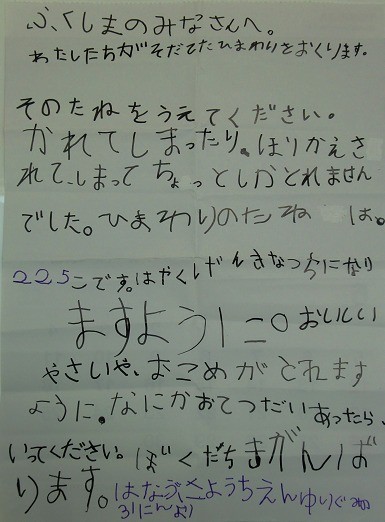 ふくしまのみなさんへ。
わたしたちがそだてたひまわりをおくります。
そのたねをうえてください。
かれてしまったり。ほりかえさ
れて、しまってちょっとしかとれません
でした。ひまわりのたね は。
225こです。はやくげんきなつちになり
ますように。おいしい
やさいや、おこめがとれます
ように。なにかおてつだいあったら、
いってください。ぼくたちもがんば
ります。はなぶさようちえんゆりぐみ
31にんより